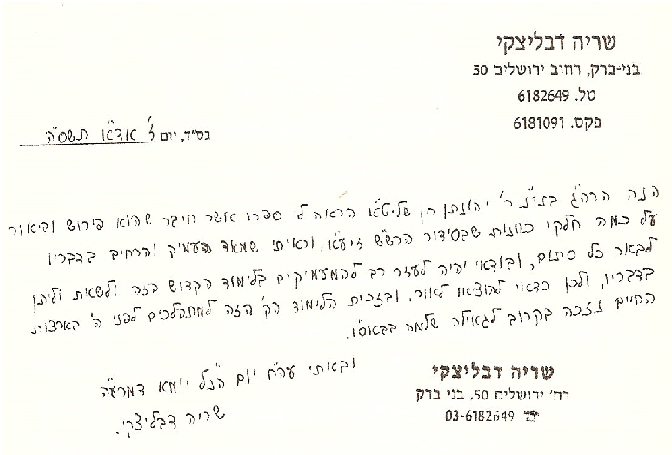 שריה דבליצקי
בני-ברק, רחוב ירושלים 50
טל. 6182649
פקס. 6181091
בס"ד, יום ל' אדא"ו תשס"ה
הנה הרה"ג בתי"ת ר' יהונתן שליט"א הראה לי ספרו אשר חיבר שהוא פירוש וביאור
על כמה חלקי כוונות שבסידור הרש"ש זיע"א, וראיתי שמאד העמיק והרחיב בדבריו
לבאר כל סתום, ובודאי יהיה לעזר רב להמעמיקים בלימוד הקדוש הזה ולשאת וליתן
בדבריו, ולכן כדאי להוציאו לאור, ובזכות הלימוד הק' הזה למתהלכים לפני ה' בארצות
החיים נזכה בקרוב לגאולה שלמה בבאס"ו.
ובאתי עה"ח יום הנ"ל
שריה דבליצקי
שריה דבליצקי
רח' ירושלים 50, בני ברק
03-6182649